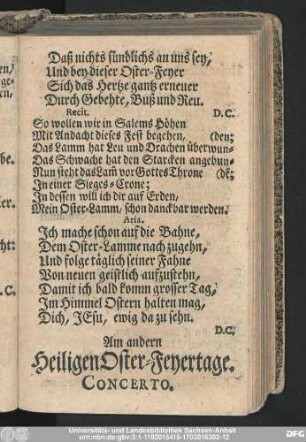 Daß nichts sündlichs an uns sey,
Und bey dieser Oster-Feyer
Sich das Hertze gantz erneuer
Durch Gebehte, Buß und Reu.
Recit. D.C.
So wollen wir in Salems Höhen
Mit Andacht dieses Fest begehen, (den;
Das Lamm hat Leu und Drachen überwun-
Das Schwache hat den Starcken angebun-
Nun steht das Lam̃ vor Gottes Throne (dẽ;
In einer Sieges-Crone;
In dessen will ich dir auf Erden,
Mein Oster-Lamm, schon danckbar werden.
Aria.
Ich mache schon auf die Bahne,
Dem Oster-Lamme nach zugehn,
Und folge täglich seiner Fahne
Von neuen geistlich aufzustehn,
Damit ich bald komm grosser Tag,
Im Himmel Ostern halten mag,
Dich, JEsu, ewig da zu sehn.
D.C.
Am andern
Heiligen Oster-Feyertage.
CONCERTO.
Universitäts- und Landesbibliothek Sachsen-Anhalt
urn:nbn:de:gbv:3:1-1192015415-1703816382-12
DFG